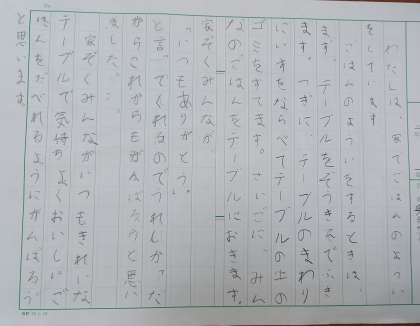 わたしは、家でごはんのようい
をしています
ごはんのよういをするときは、
ます。テーブルをぞうきんでふき
ます。つぎに、テーブルのまわり
にいすをならべてテーブルの上の
ゴミをすてます。さいごに、みん
なのごはんをテーブルにおきます。
家ぞくみんなが、
「いつもありがとう。」
と言ってくれるのでうれしかった
からこれからもがんばろうと思い
ました。
家ぞくみんながいつもきれいな
テーブルで気持ちよくおいしいご
はんをたべれるようにがんばろう
と思います